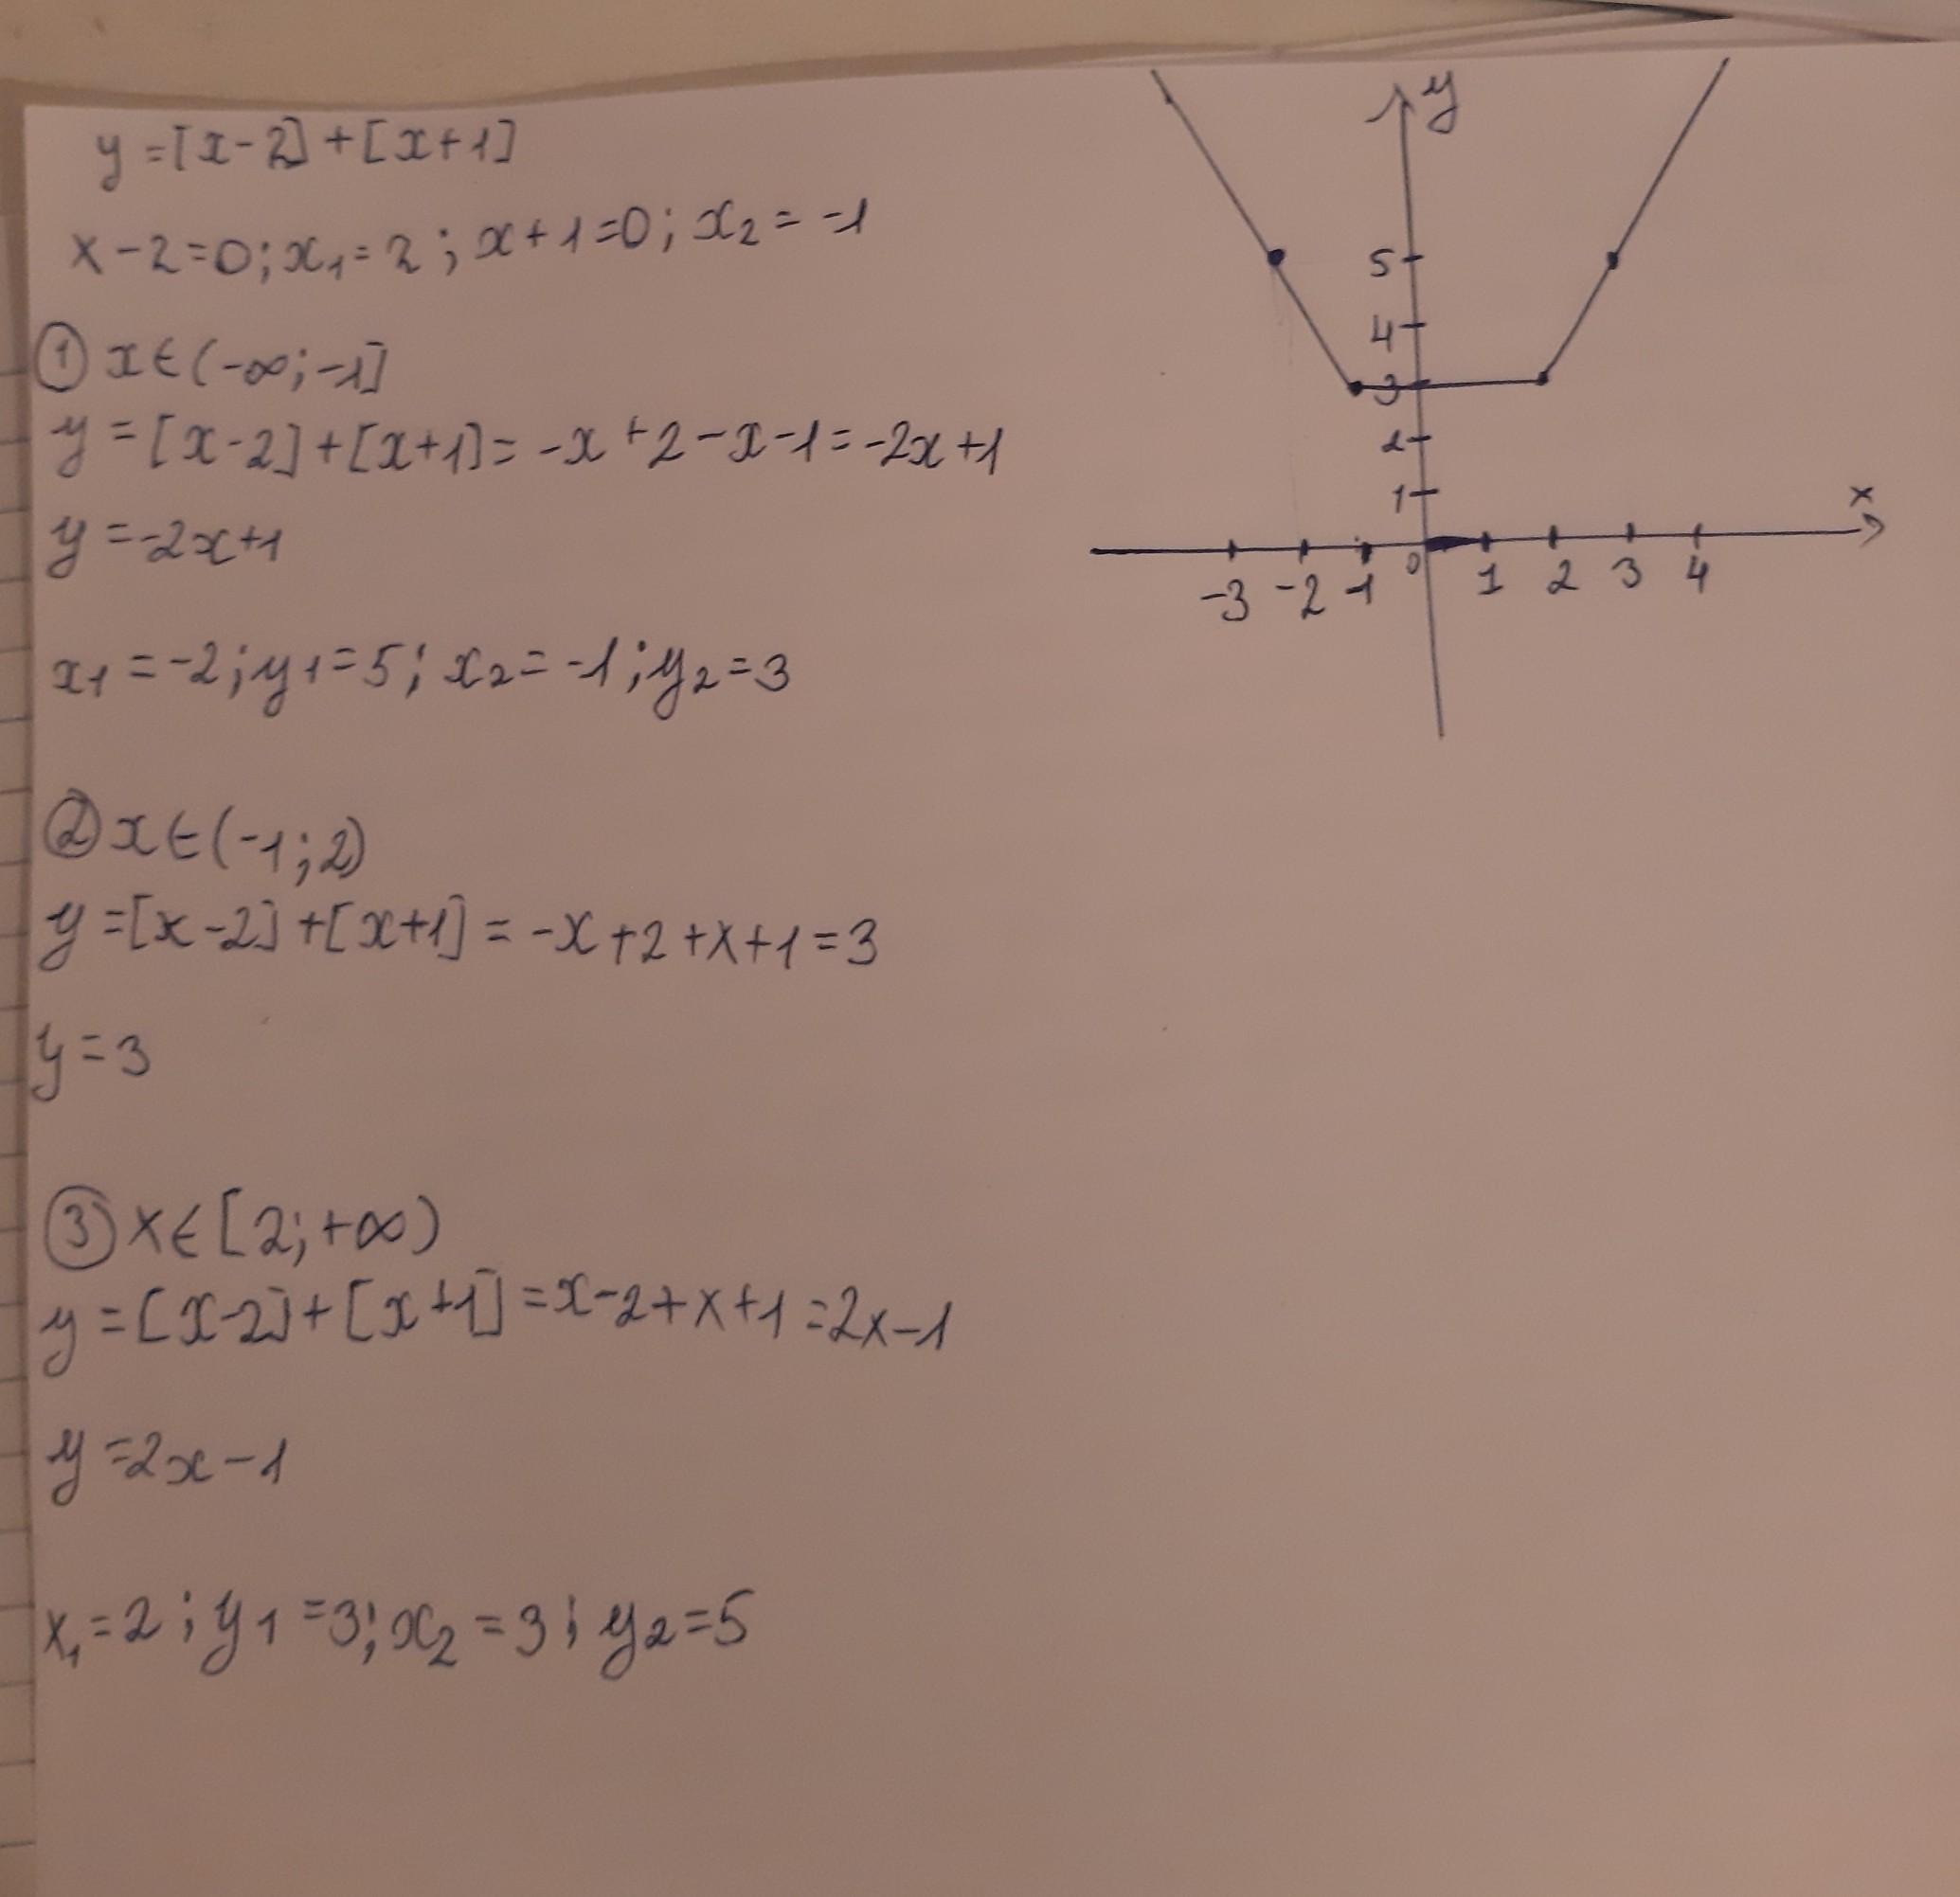 y = [x-2] + [x+1]
x-2=0; x₁=2; x+1=0; x₂=-1
① x∈(-∞;-1]
y = [x-2]+[x+1]= -x+2-x-1=-2x+1
y=-2x+1
x₁=-2; y₁=5; x₂=-1; y₂=3
② x∈(-1;2)
y=[x-2]+[x+1]=-x+2+x+1=3
y=3
③ x∈[2;+∞)
y=[x-2]+[x+1]=x-2+x+1=2x-1
y=2x-1
x₁=2; y₁=3; x₂=3; y₂=5
y
5
4
3
2
1
x
-3 -2 -1 0 1 2 3 4